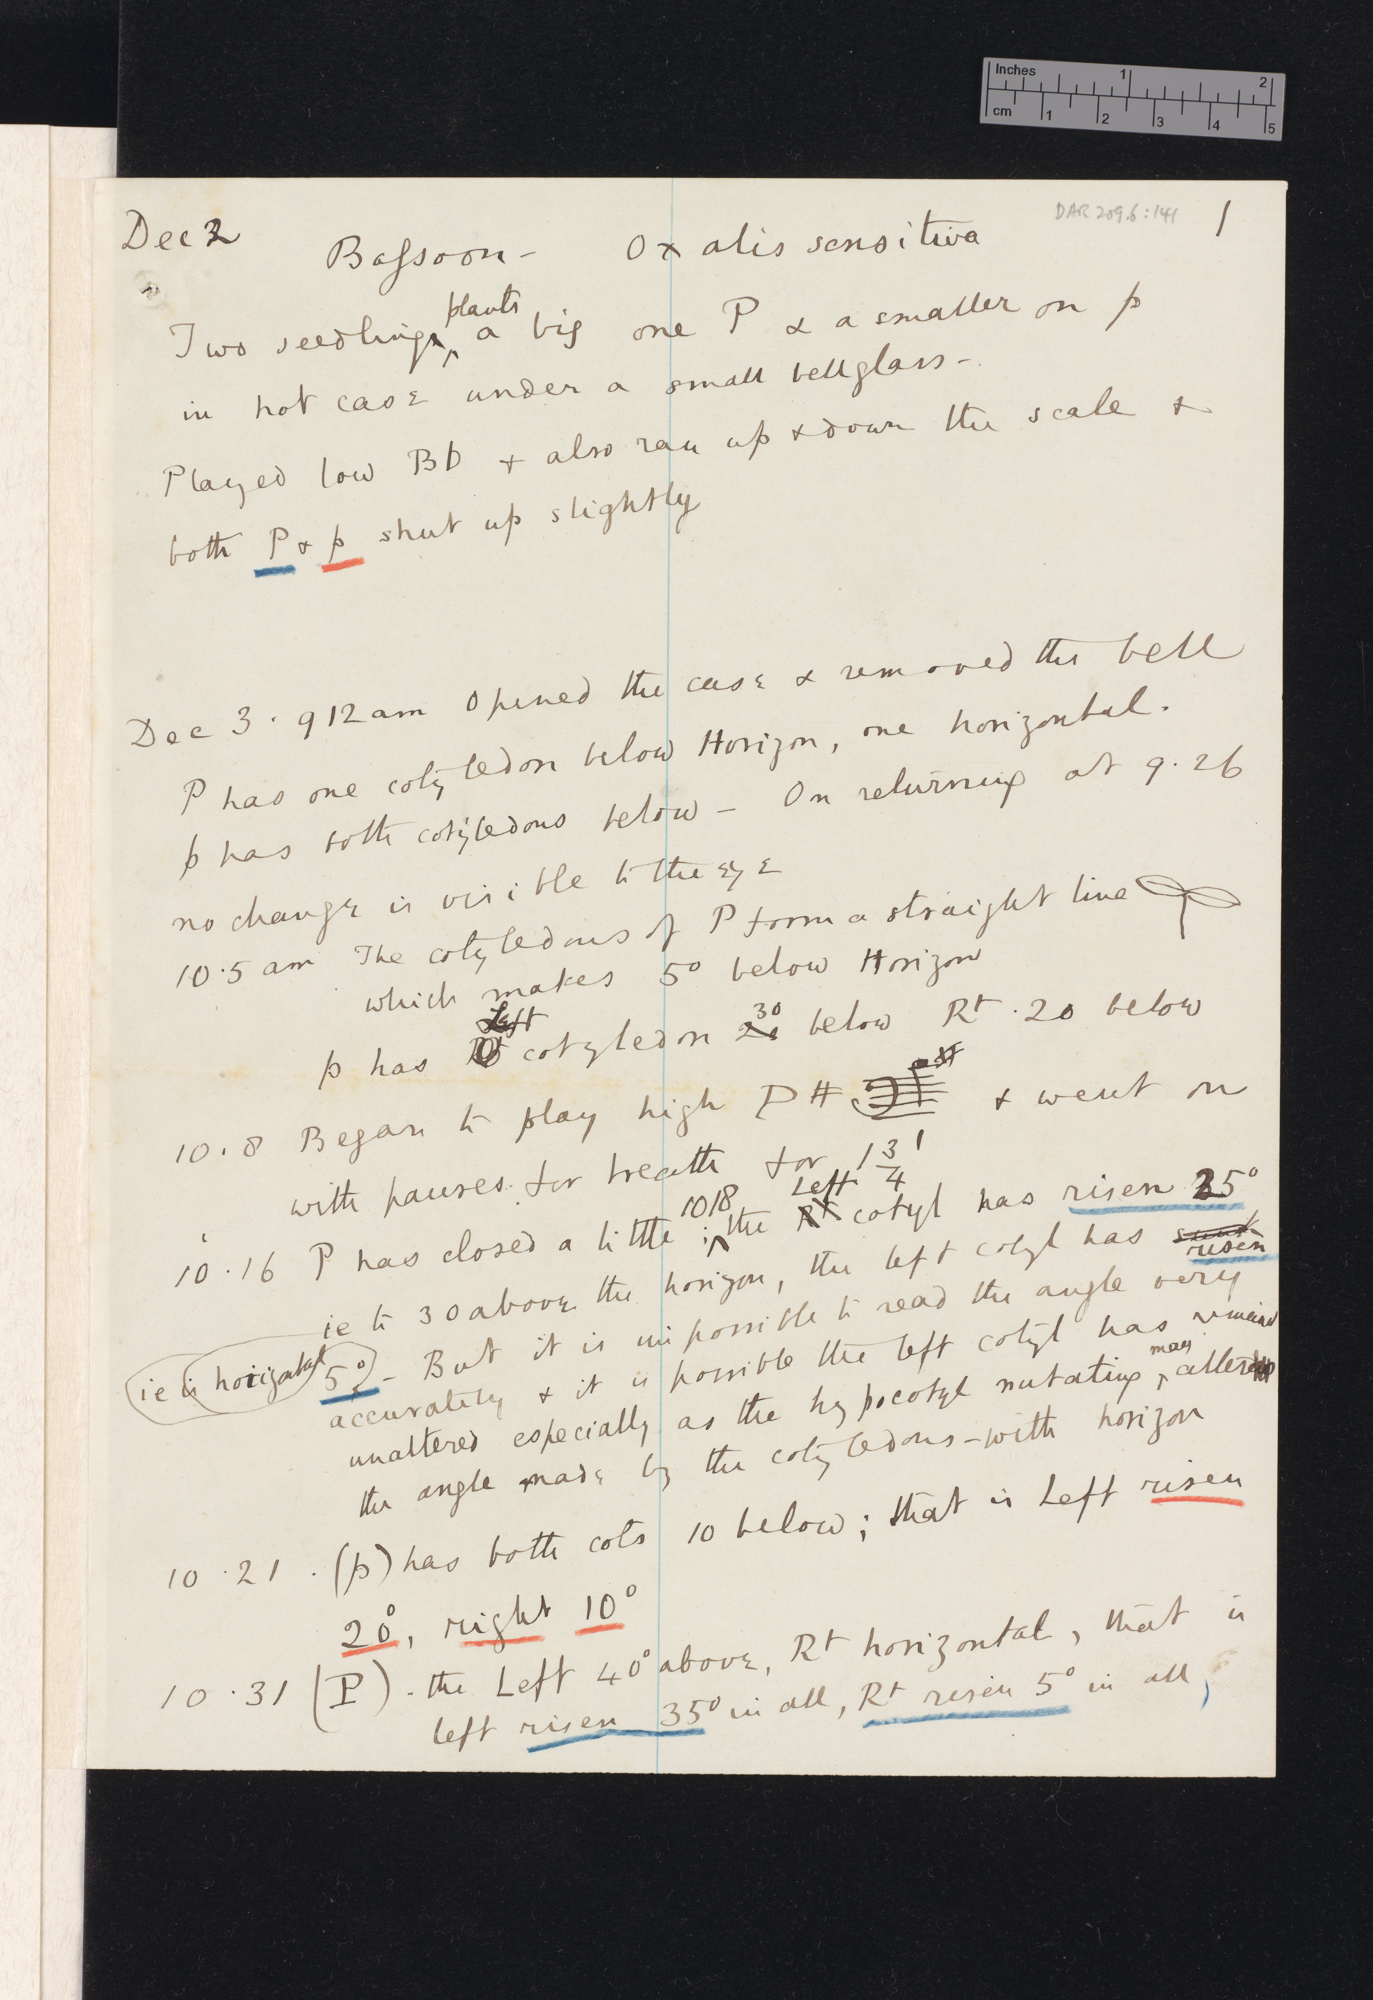 Inches 1 2
cm 1 2 3 4 5
DAR 209.6:141 1
Dec 2
Bassoon – Oxalis sensitiva
Two seedlings plants a big one P & a smaller on p
in hot case under a small bellglass –
Played low B♭ & also ran up & down the scale &
both P & p shut up slightly
Dec 3. 9 12 am Opened the case & removed the bell
P has one cotyledon below Horizon, one horizontal.
p has both cotyledons below – On returning at 9.26
no change is visible to the eye
10.5 am The cotyledons of P form a straight line
which makes 5° below Horizon
p has Left cotyledon 30 below Rt. 20 below
10.8 Began to play high D# & went on
with pauses for breath for 1 3/4'
10.16 P has closed a little 1018 ; the Left Rt cotyl has risen 25°
ie to 30 above the horizon, the left cotyl has sunk risen
ie is horizontal 5° – But it is impossible to read the angle very
accurately & it is possible the left cotyl has remaind
unaltered especially as the hypocotyl nutating may alter
the angle made by the cotyledons – with horizon
10.21. (p) has both cots 10 below; that is Left risen
20°, right 10°
10.31 (P). the Left 40° above, Rt horizontal, that is
left risen 35° in all, Rt risen 5° in all